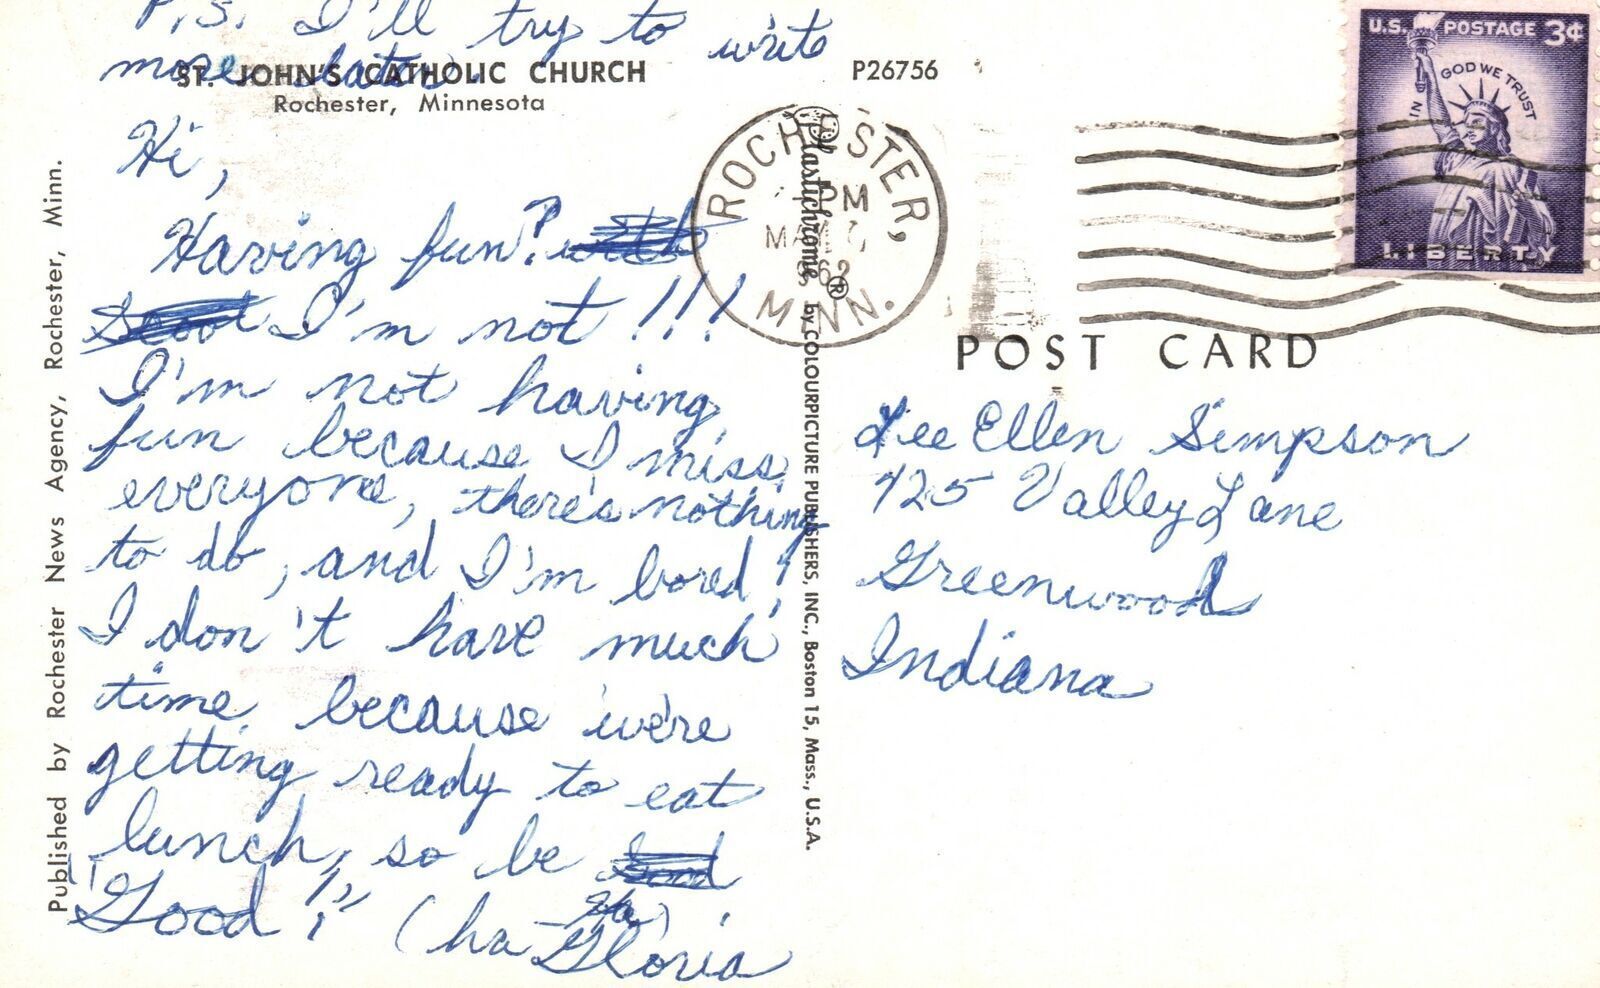 P.S. I'll try to write
more later.
ST. JOHN'S CATHOLIC CHURCH
Rochester, Minnesota
P26756
Hi,
Having fun?
I'm not!!!
I'm not having
fun because I miss
everyone, there's nothing
to do, and I'm bored!
I don't have much
time because we're
getting ready to eat
lunch, so be
"Good!" (ha Ha)
Gloria
Published by Rochester News Agency, Rochester, Minn.
Plastichrome® by COLOURPICTURE PUBLISHERS, INC., Boston 15, Mass., U.S.A.
ROCHESTER,
PM
MINN.
U.S. POSTAGE 3¢
IN GOD WE TRUST
LIBERTY
POST CARD
Lee Ellen Simpson
725 Valley Lane
Greenwood
Indiana